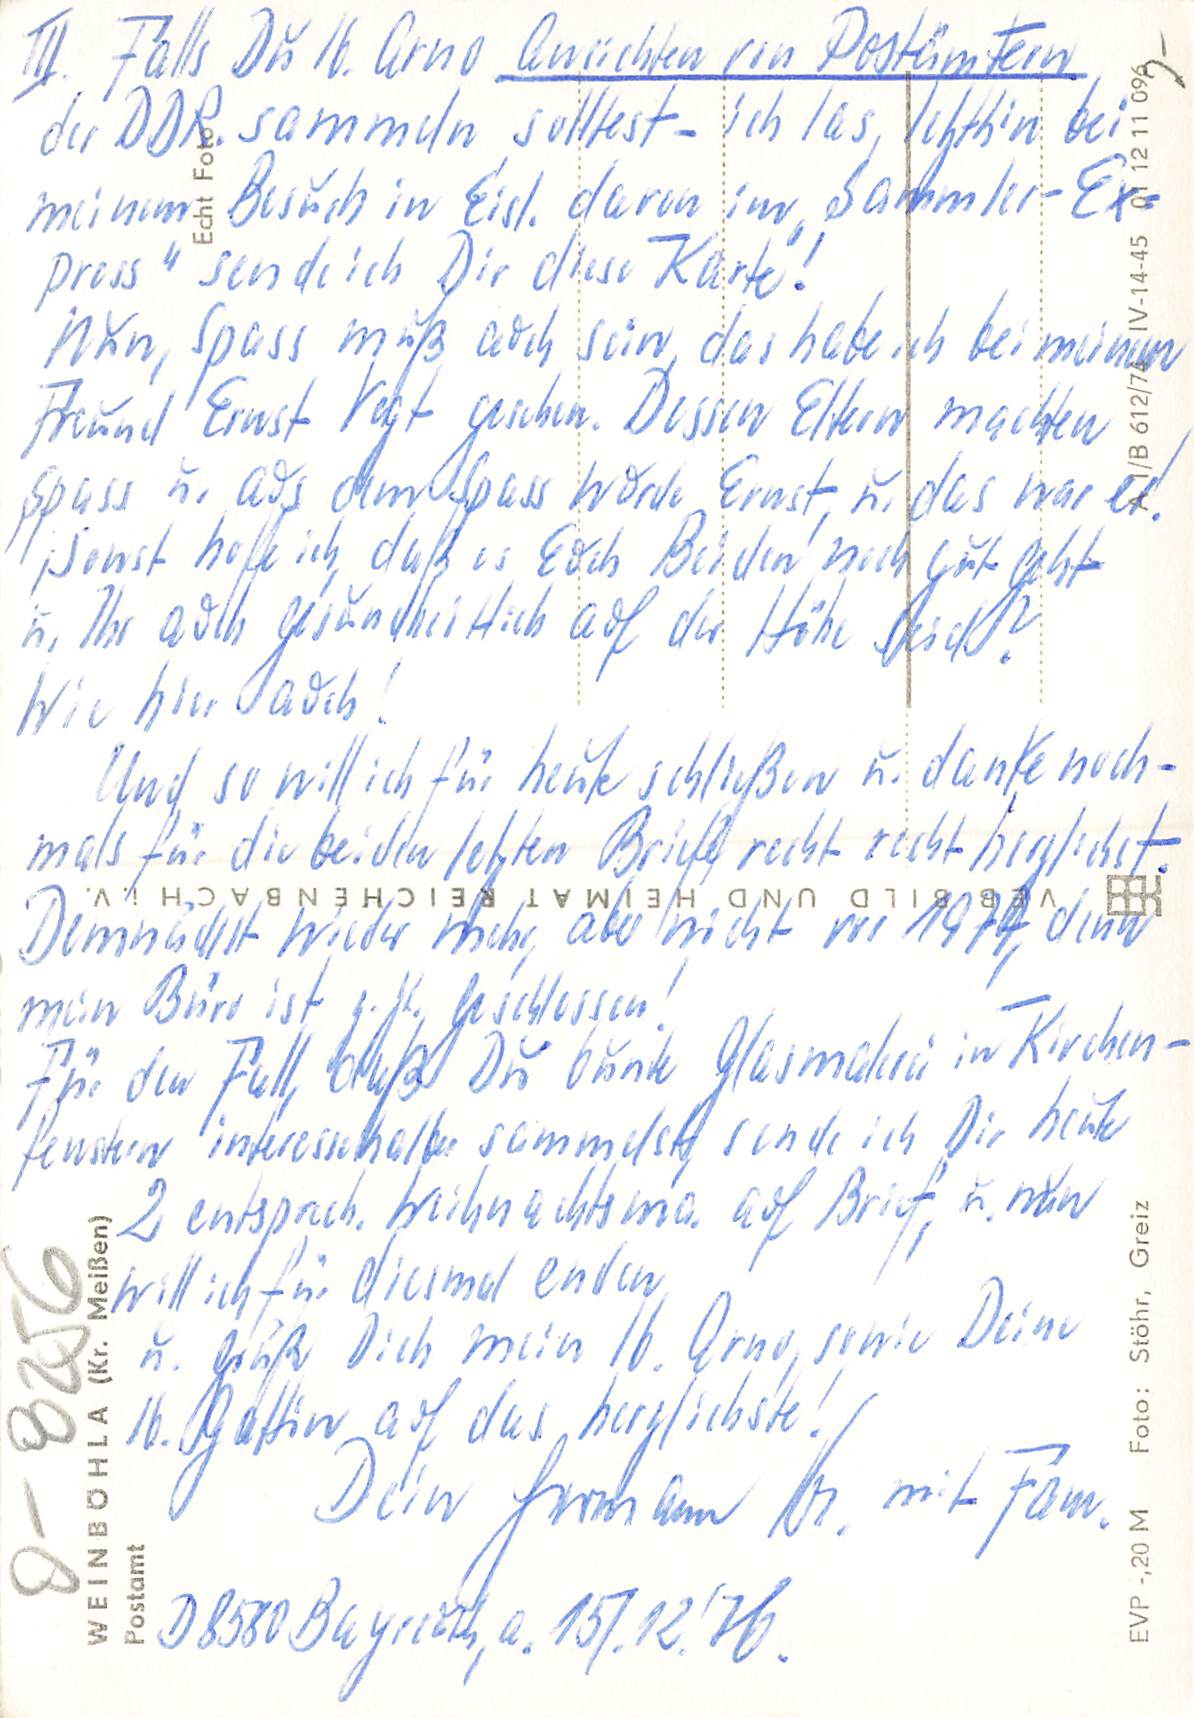 III. Falls Du lb. Arno Ansichten von Postämtern
der DDR. sammeln solltest - ich las, letzthin bei
meinem Besuch in Eisl. davon im "Sammler-Ex-
press" sende ich Dir diese Karte!
Nun, Spass muß auch sein, das habe ich bei meinem
Freund Ernst Vogt gesehen. Dessen Eltern machten
Spass u. aus dem Spass wurde Ernst, u. das war er!
Sonst hoffe ich, daß es Euch Beiden noch gut geht
u. Ihr auch gesundheitlich auf der Höhe seid?
Wie hier auch!
Und so will ich für heute schließen u. danke noch-
mals für die beiden letzten Briefe, recht recht herzlichst.
Demnächst wieder mehr, aber nicht vor 1977, denn
mein Büro ist geschlossen!
Für den Fall, daß Du bunte Glasmalerei in Kirchen-
fenstern interessehalber sammelst, sende ich Dir heute
2 entsprech. Weihnachtsma. auf Brief, u. nun
will ich für diesmal enden
u. grüß Dich mein lb. Arno, sowie Deine
lb. Gattin auf das herzlichste!
Dein Hermann mit Fam.
D 8580 Bayreuth, a. 15/.12.'76.
Echt Foto
A 1/B 612/74 IV-14-45 01 12 11 096
VEB BILD UND HEIMAT REICHENBACH i. V.
8-8256
WEINBÖHLA (Kr. Meißen)
Postamt
EVP -,20 M Foto: Stöhr, Greiz